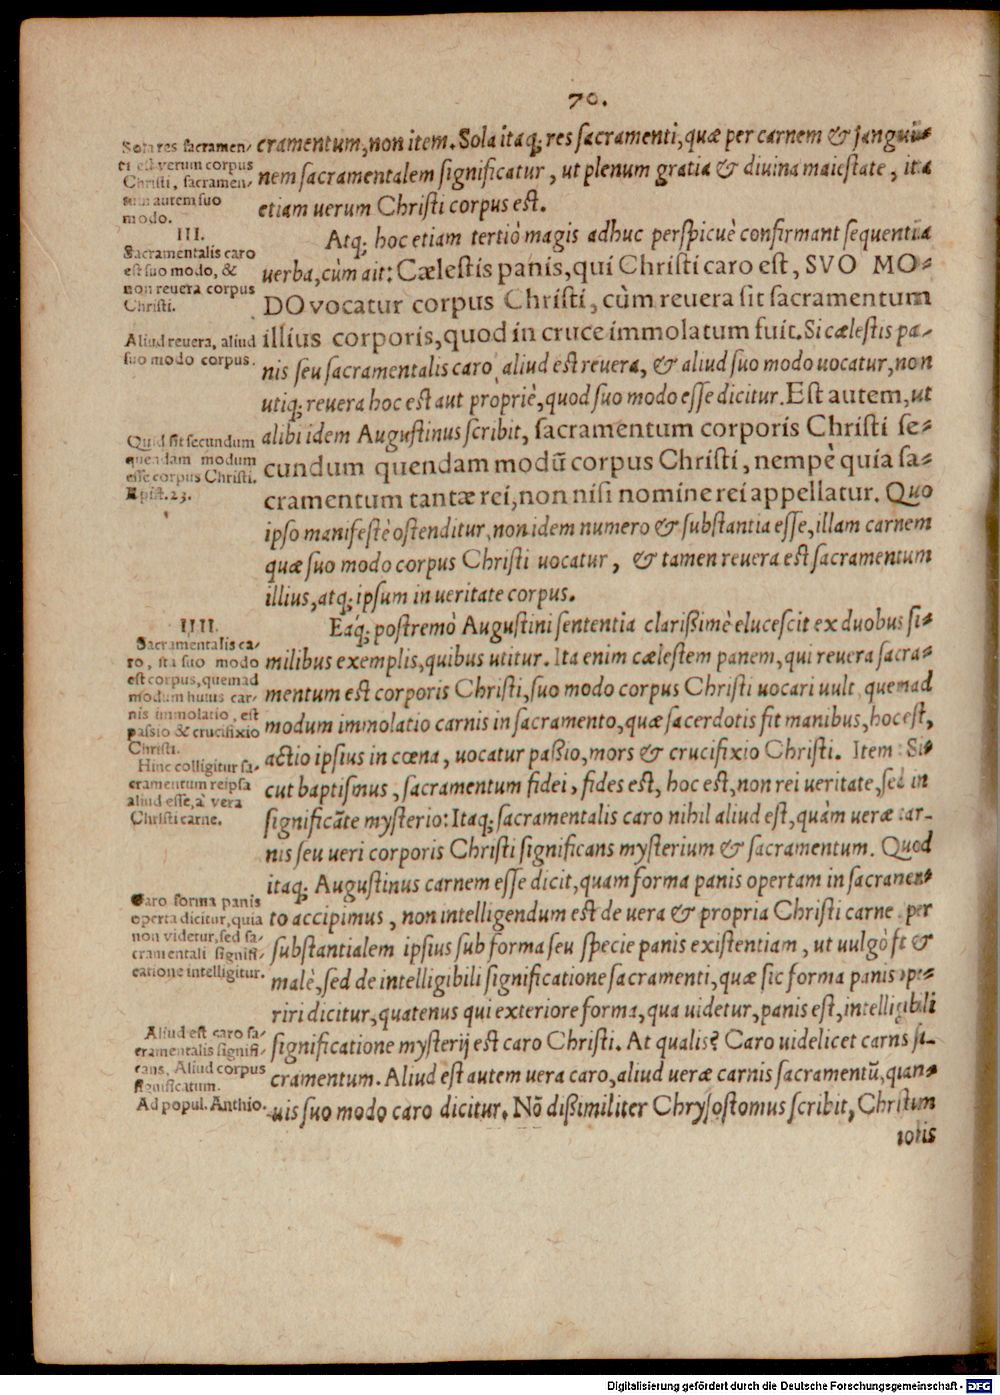 70.
Sola res sacramen-
ti est verum corpus
Christi, sacramen-
tum autem suo
modo.
cramentum, non item. Sola itaq; res sacramenti, quæ per carnem & sangui-
nem sacramentalem significatur, ut plenum gratia & diuina maiestate, ita
etiam uerum Christi corpus est.
III.
Sacramentalis caro
est suo modo, &
non revera corpus
Christi.
Aliud revera, aliud
suo modo corpus.
Quid sit secundum
quendam modum
esse corpus Christi.
Epist. 23.
Atq; hoc etiam tertiò magis adhuc perspicuè confirmant sequentia
uerba, cùm ait: Cælestis panis, qui Christi caro est, SVO MO-
DO vocatur corpus Christi, cùm reuera sit sacramentum
illius corporis, quod in cruce immolatum fuit. Si cælestis pa-
nis seu sacramentalis caro, aliud est reuera, & aliud suo modo uocatur, non
utiq; reuera hoc est aut propriè, quod suo modo esse dicitur. Est autem, ut
alibi idem Augustinus scribit, sacramentum corporis Christi se-
cundum quendam modũ corpus Christi, nempè quia sa-
cramentum tantæ rei, non nisi nomine rei appellatur. Quo
ipso manifestè ostenditur, non idem numero & substantia esse, illam carnem
quæ suo modo corpus Christi uocatur, & tamen reuera est sacramentum
illius, atq; ipsum in ueritate corpus.
IIII.
Sacramentalis ca-
ro, ita suo modo
est corpus, quemad
modum huius car-
nis immolatio, est
passio & crucifixio
Christi.
Hinc colligitur sa-
cramentum reipsa
aliud esse, à vera
Christi carne.
Caro forma panis
operta dicitur, quia
non videtur, sed sa-
cramentali signifi-
catione intelligitur.
Aliud est caro sa-
cramentalis signifi-
cans, Aliud corpus
significatum.
Ad popul. Anthio.
Eaq; postremò Augustini sententia clarißimè elucescit ex duobus si-
milibus exemplis, quibus utitur. Ita enim cælestem panem, qui reuera sacra-
mentum est corporis Christi, suo modo corpus Christi uocari uult, quemad
modum immolatio carnis in sacramento, quæ sacerdotis fit manibus, hoc est,
actio ipsius in cœna, uocatur paßio, mors & crucifixio Christi. Item: Si-
cut baptismus, sacramentum fidei, fides est, hoc est, non rei ueritate, sed in
significãte mysterio: Itaq; sacramentalis caro nihil aliud est, quàm ueræ car-
nis seu ueri corporis Christi significans mysterium & sacramentum. Quod
itaq; Augustinus carnem esse dicit, quam forma panis opertam in sacramen-
to accipimus, non intelligendum est de uera & propria Christi carne per
substantialem ipsius sub forma seu specie panis existentiam, ut uulgò fit &
malè, sed de intelligibili significatione sacramenti, quæ sic forma panis ope-
riri dicitur, quatenus qui exteriore forma, qua uidetur, panis est, intelligibili
significatione mysterij est caro Christi. At qualis? Caro uidelicet carnis sa-
cramentum. Aliud est autem uera caro, aliud ueræ carnis sacramentũ, quan-
uis suo modo caro dicitur. Nõ dißimiliter Chrysostomus scribit, Christum
totis
Digitalisierung gefördert durch die Deutsche Forschungsgemeinschaft - DFG